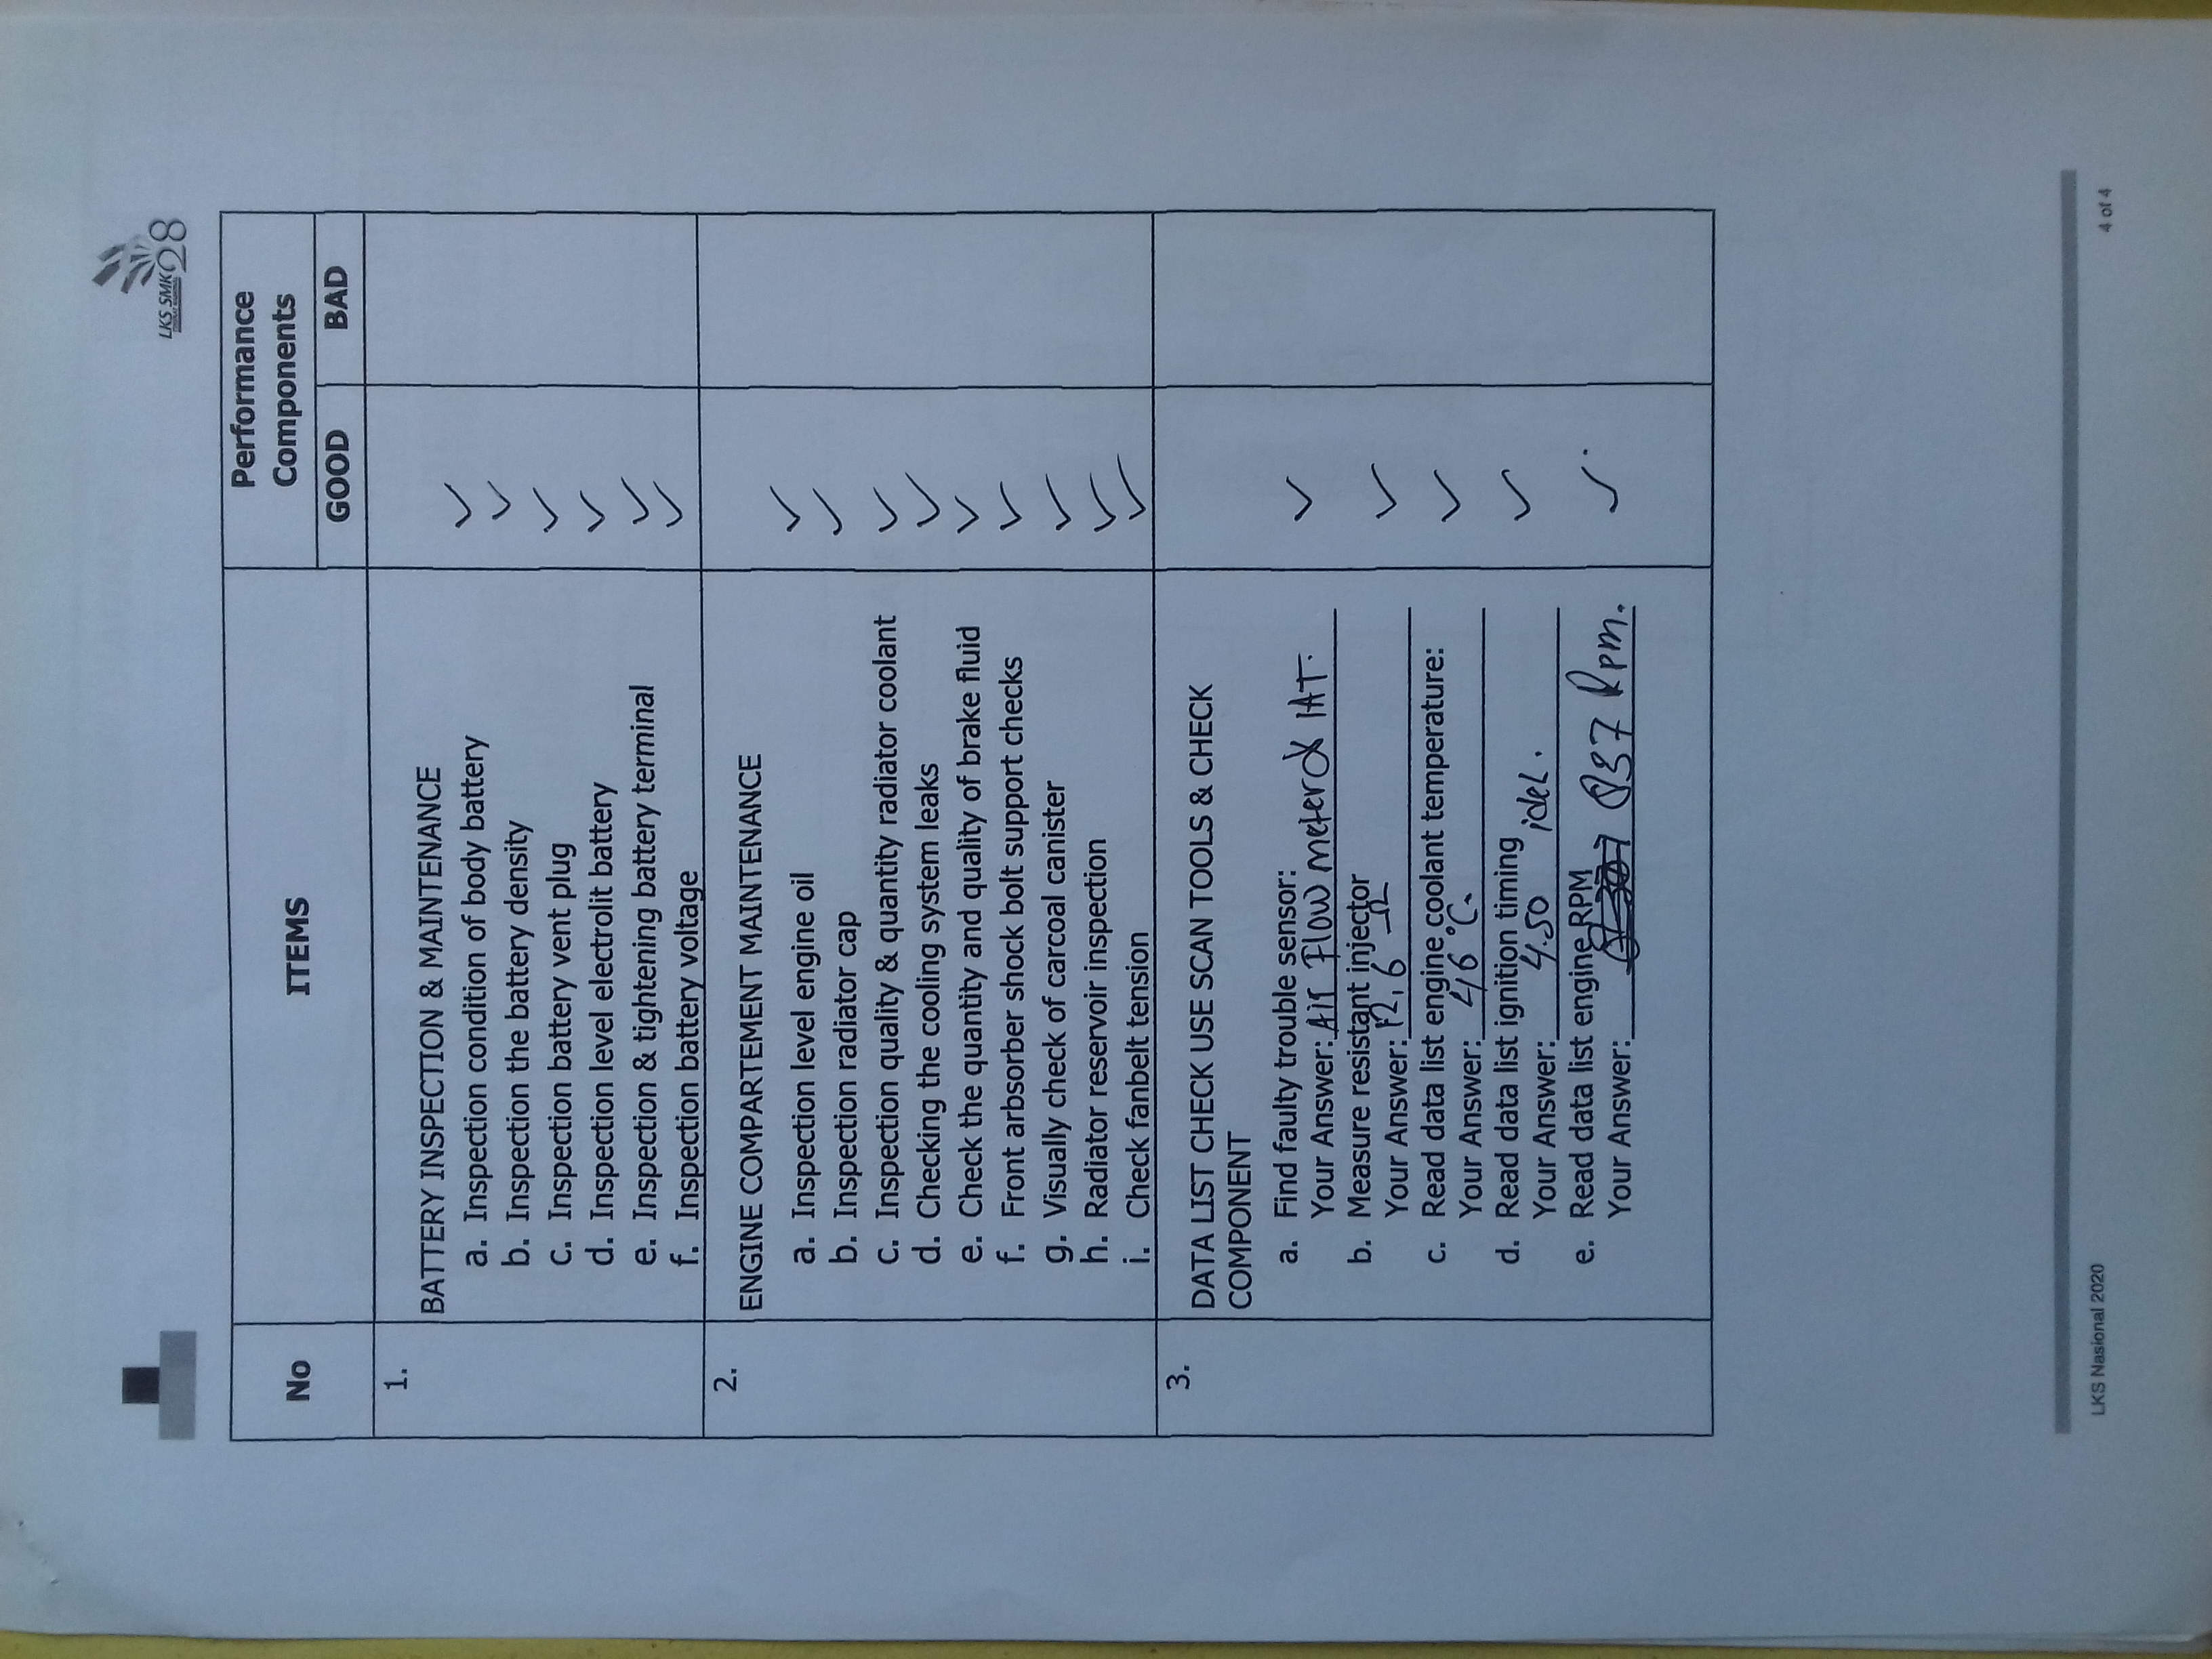 LKS SMK 28
No
ITEMS
Performance
Components
GOOD
BAD
1.
BATTERY INSPECTION & MAINTENANCE
a. Inspection condition of body battery ✓
b. Inspection the battery density ✓
c. Inspection battery vent plug ✓
d. Inspection level electrolit battery ✓
e. Inspection & tightening battery terminal ✓
f. Inspection battery voltage ✓
2.
ENGINE COMPARTEMENT MAINTENANCE
a. Inspection level engine oil ✓
b. Inspection radiator cap ✓
c. Inspection quality & quantity radiator coolant ✓
d. Checking the cooling system leaks ✓
e. Check the quantity and quality of brake fluid ✓
f. Front arbsorber shock bolt support checks ✓
g. Visually check of carcoal canister ✓
h. Radiator reservoir inspection ✓
i. Check fanbelt tension ✓
3.
DATA LIST CHECK USE SCAN TOOLS & CHECK
COMPONENT
a. Find faulty trouble sensor: ✓
Your Answer: Air Flow meter & IAT.
b. Measure resistant injector
Your Answer: 12,6 Ω ✓
c. Read data list engine coolant temperature: ✓
Your Answer: 46 °C.
d. Read data list ignition timing ✓
Your Answer: 4.50 idel.
e. Read data list engine RPM
Your Answer: 837 Rpm. ✓
LKS Nasional 2020
4 of 4